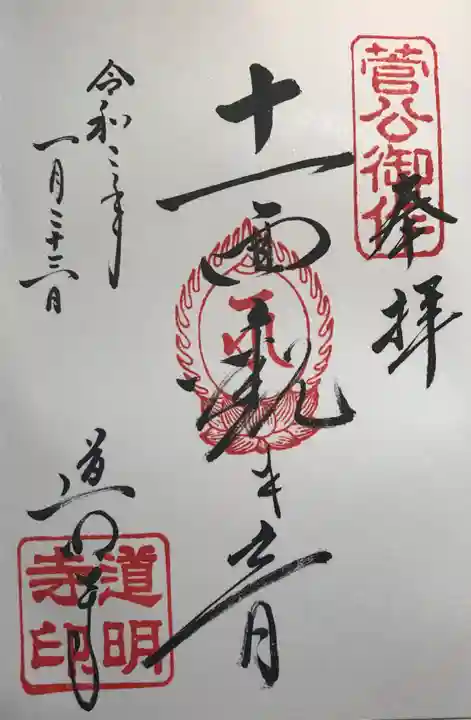 菅公御作
奉拝
十一面観世音
令和二年
一月二十三日
道明寺
道明寺印